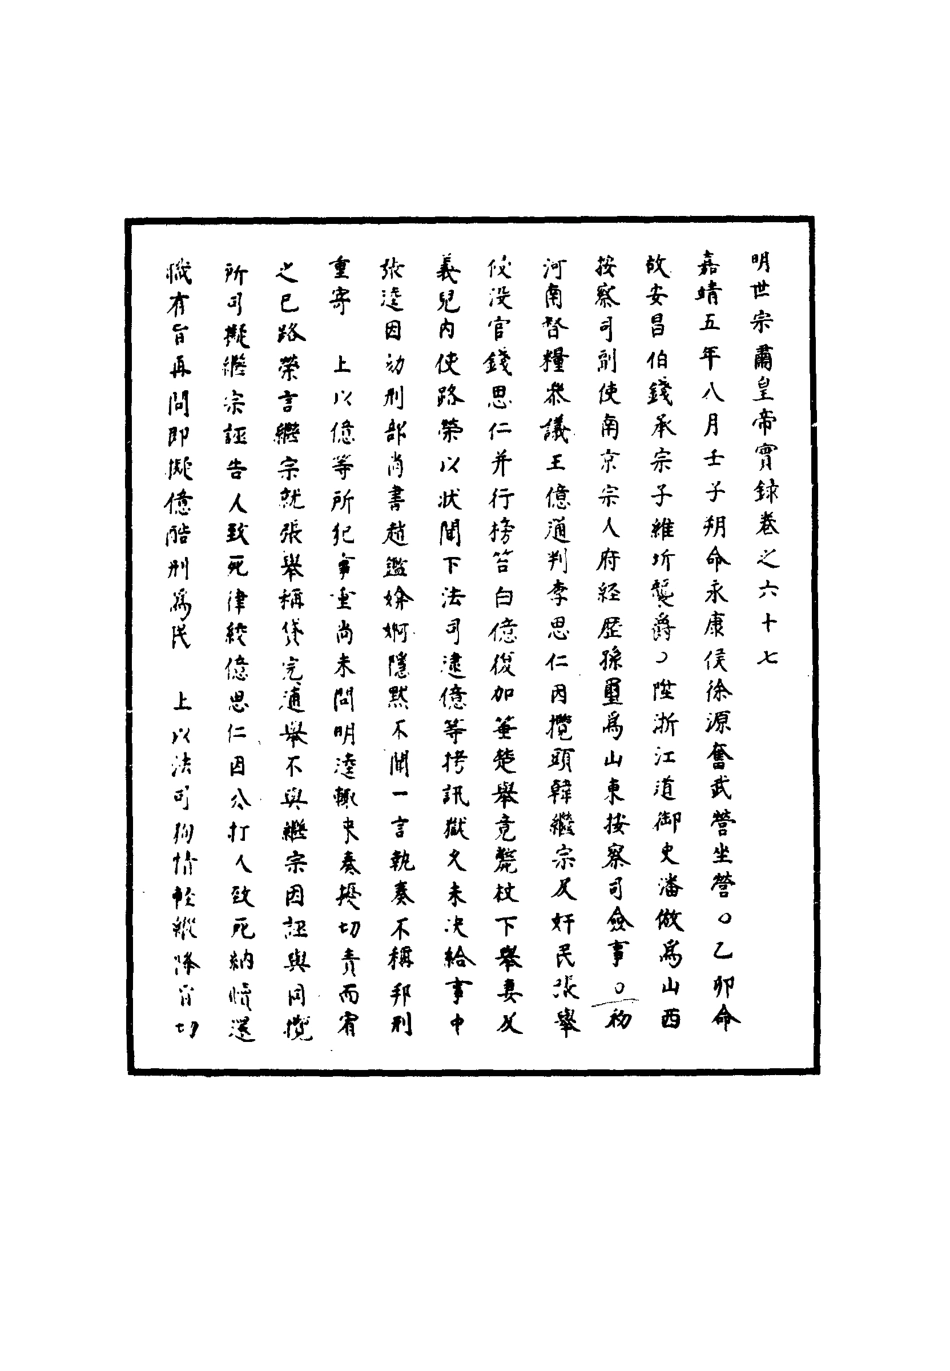 明世宗肅皇帝實録卷之六十七
嘉靖五年八月壬子朔命永康侯徐源奮武營坐營○乙卯命
故安昌伯錢承宗子維圻襲爵○陞浙江道御史潘倣爲山西
按察司副使南京宗人府経歷孫璽爲山東按察司僉事○初
河南督糧叅議王億通判李思仁因攬頭韓繼宗及奸民張舉
侵没官錢思仁并行榜笞白億復加箠楚舉竟斃杖下舉妻及
義兒内使路榮以狀聞下法司逮億等拷訊獄久未决給事中
張逵因劾刑部尚書趙鑑媕婀隱黙不聞一言執奏不稱邦刑
重寄　上以億等所犯事重尚未問明逵輒来奏擾切責而宥
之已路榮言繼宗就張舉稱貸完逋舉不與繼宗因誣與同攬
所司擬繼宗誣告人致死律絞億思仁因公打人致死納贖還
職有旨再問即擬億酷刑爲民　上以法司狥情輕縱降旨切